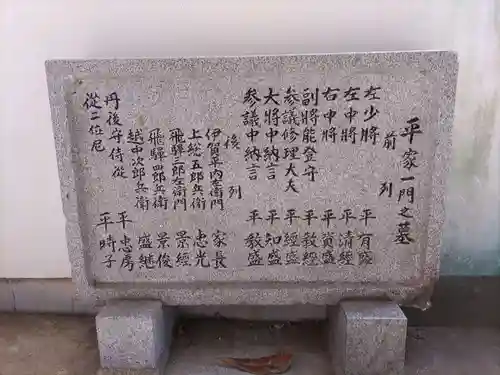 平家一門之墓
前列
左少將 平有盛
左中將 平清經
右中將 平資盛
副將能登守 平教經
參議修理大夫 平經盛
大將中納言 平知盛
參議中納言 平教盛
後列
伊賀平內左衛門 家長
上総五郎兵衛 忠光
飛驒三郎左衛門 景經
飛驒四郎兵衛 景俊
越中次郎兵衛 盛継
丹後守侍從 平忠房
從二位尼 平時子